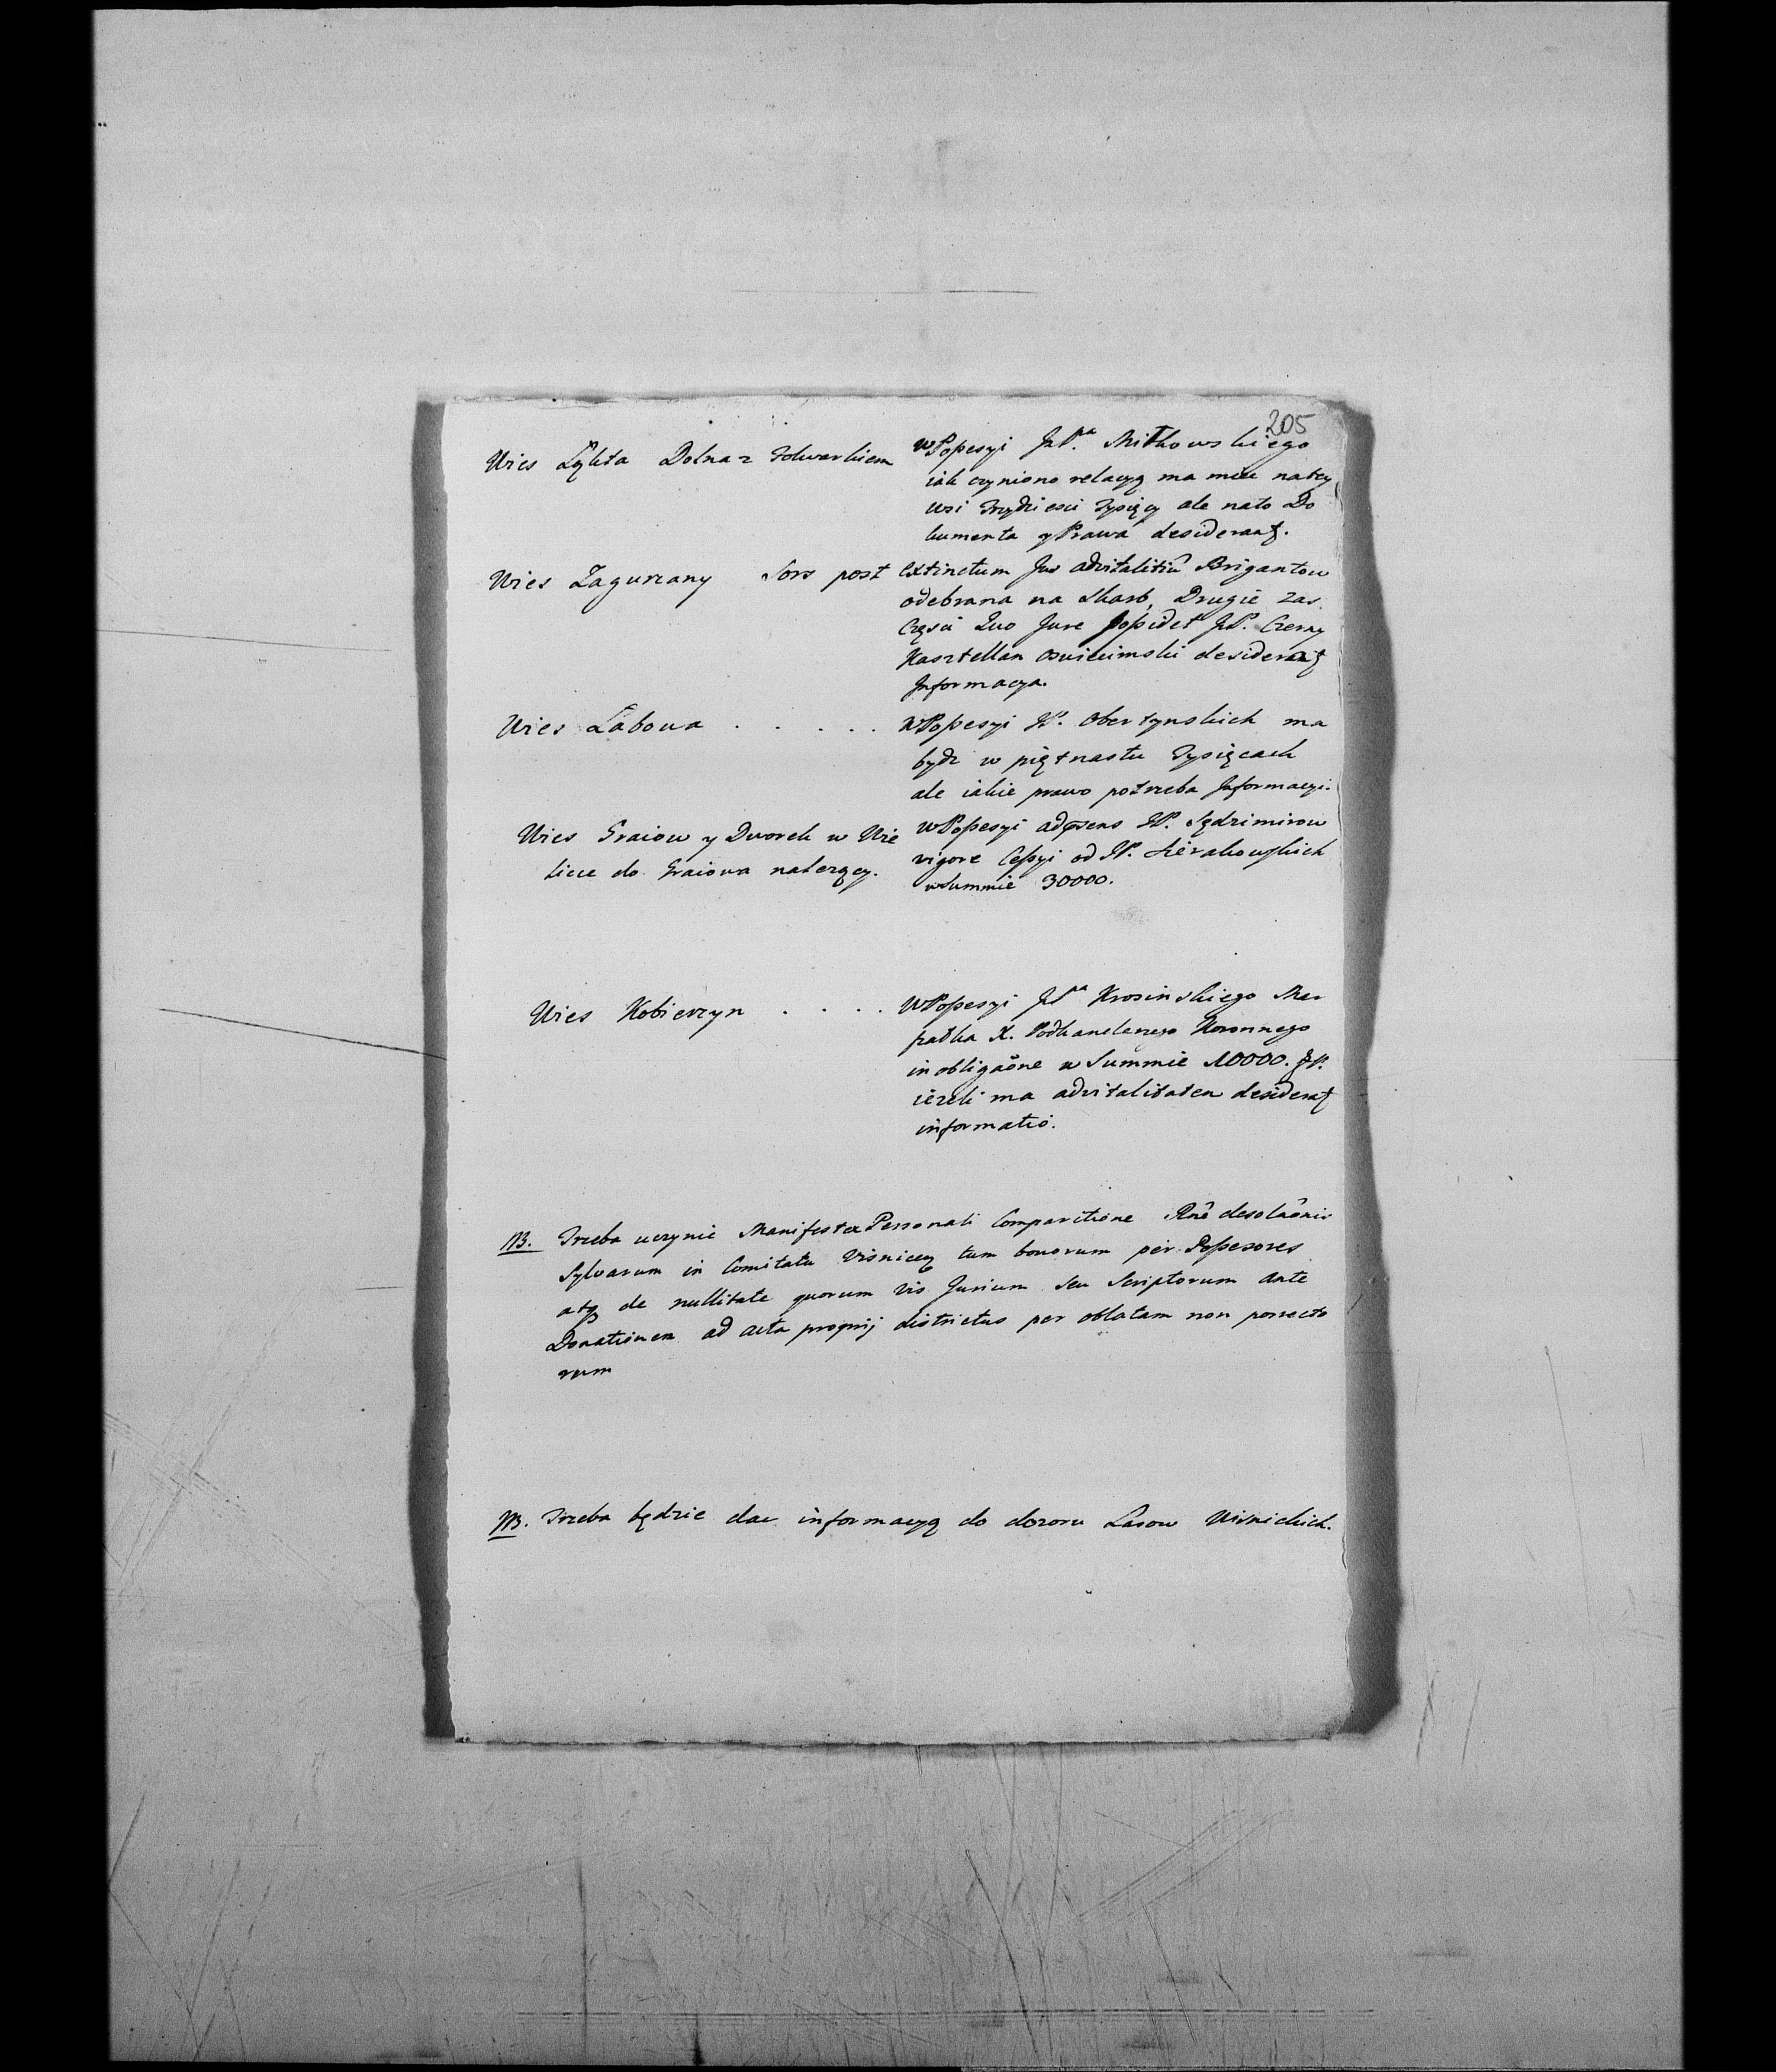 205
Wies Łąkta Dolna z Folwarkiem
w Possesyi JP.ͣ Mitkowskiego
iak czyniono relacyą ma mieć na tey
wsi Trzydziesci Tysięcy ale na to Do
kumenta y Prawa desiderantʒ.
Wies Zagurzany Sors post
Extinctum Jus advitalitiũ Brigantow
odebrana na Skarb, Drugie zas
Częsci Quo Jure possidet JP. Czerny
Kasztellan Oswiecimski desideratʒ
Informacya.
Wies Łabowa . . . . .
W Possesyi JP. Obertynskich ma
bydz w piętnastu Tysięcach
ale iakie prawo potrzeba Informacyi.
Wies Graiow y Dworek w Wie
liczce do Graiowa nalezący.
w Possesyi ad psens JP. Sędzimirow
vigore Cessyi od JP. Sierakowskich
w Summie 30000.
Wies Kobierzyn . . . .
W Possesyi JP.ͣ Krosinskiego Mar
szałka X. Podkanclerzego Koronnego
in obligaõne w Summie 10000. zł.
iezeli ma advitalitatem desideratʒ
informatio.
NB. Trzeba uczynic Manifest ex Personali Comparitione Rnẽ desolaõnis
Sylvarum in Comitatu Visnicenʒ tum bonorum per Possesores
atqʒ de nullitate quorum vis Jurium seu Scriptorum ante
Donationem ad acta proprij districtus per oblatam non porrecto
rum
NB. Trzeba będzie dac informacyą do dozoru Lasow Wisnickich.